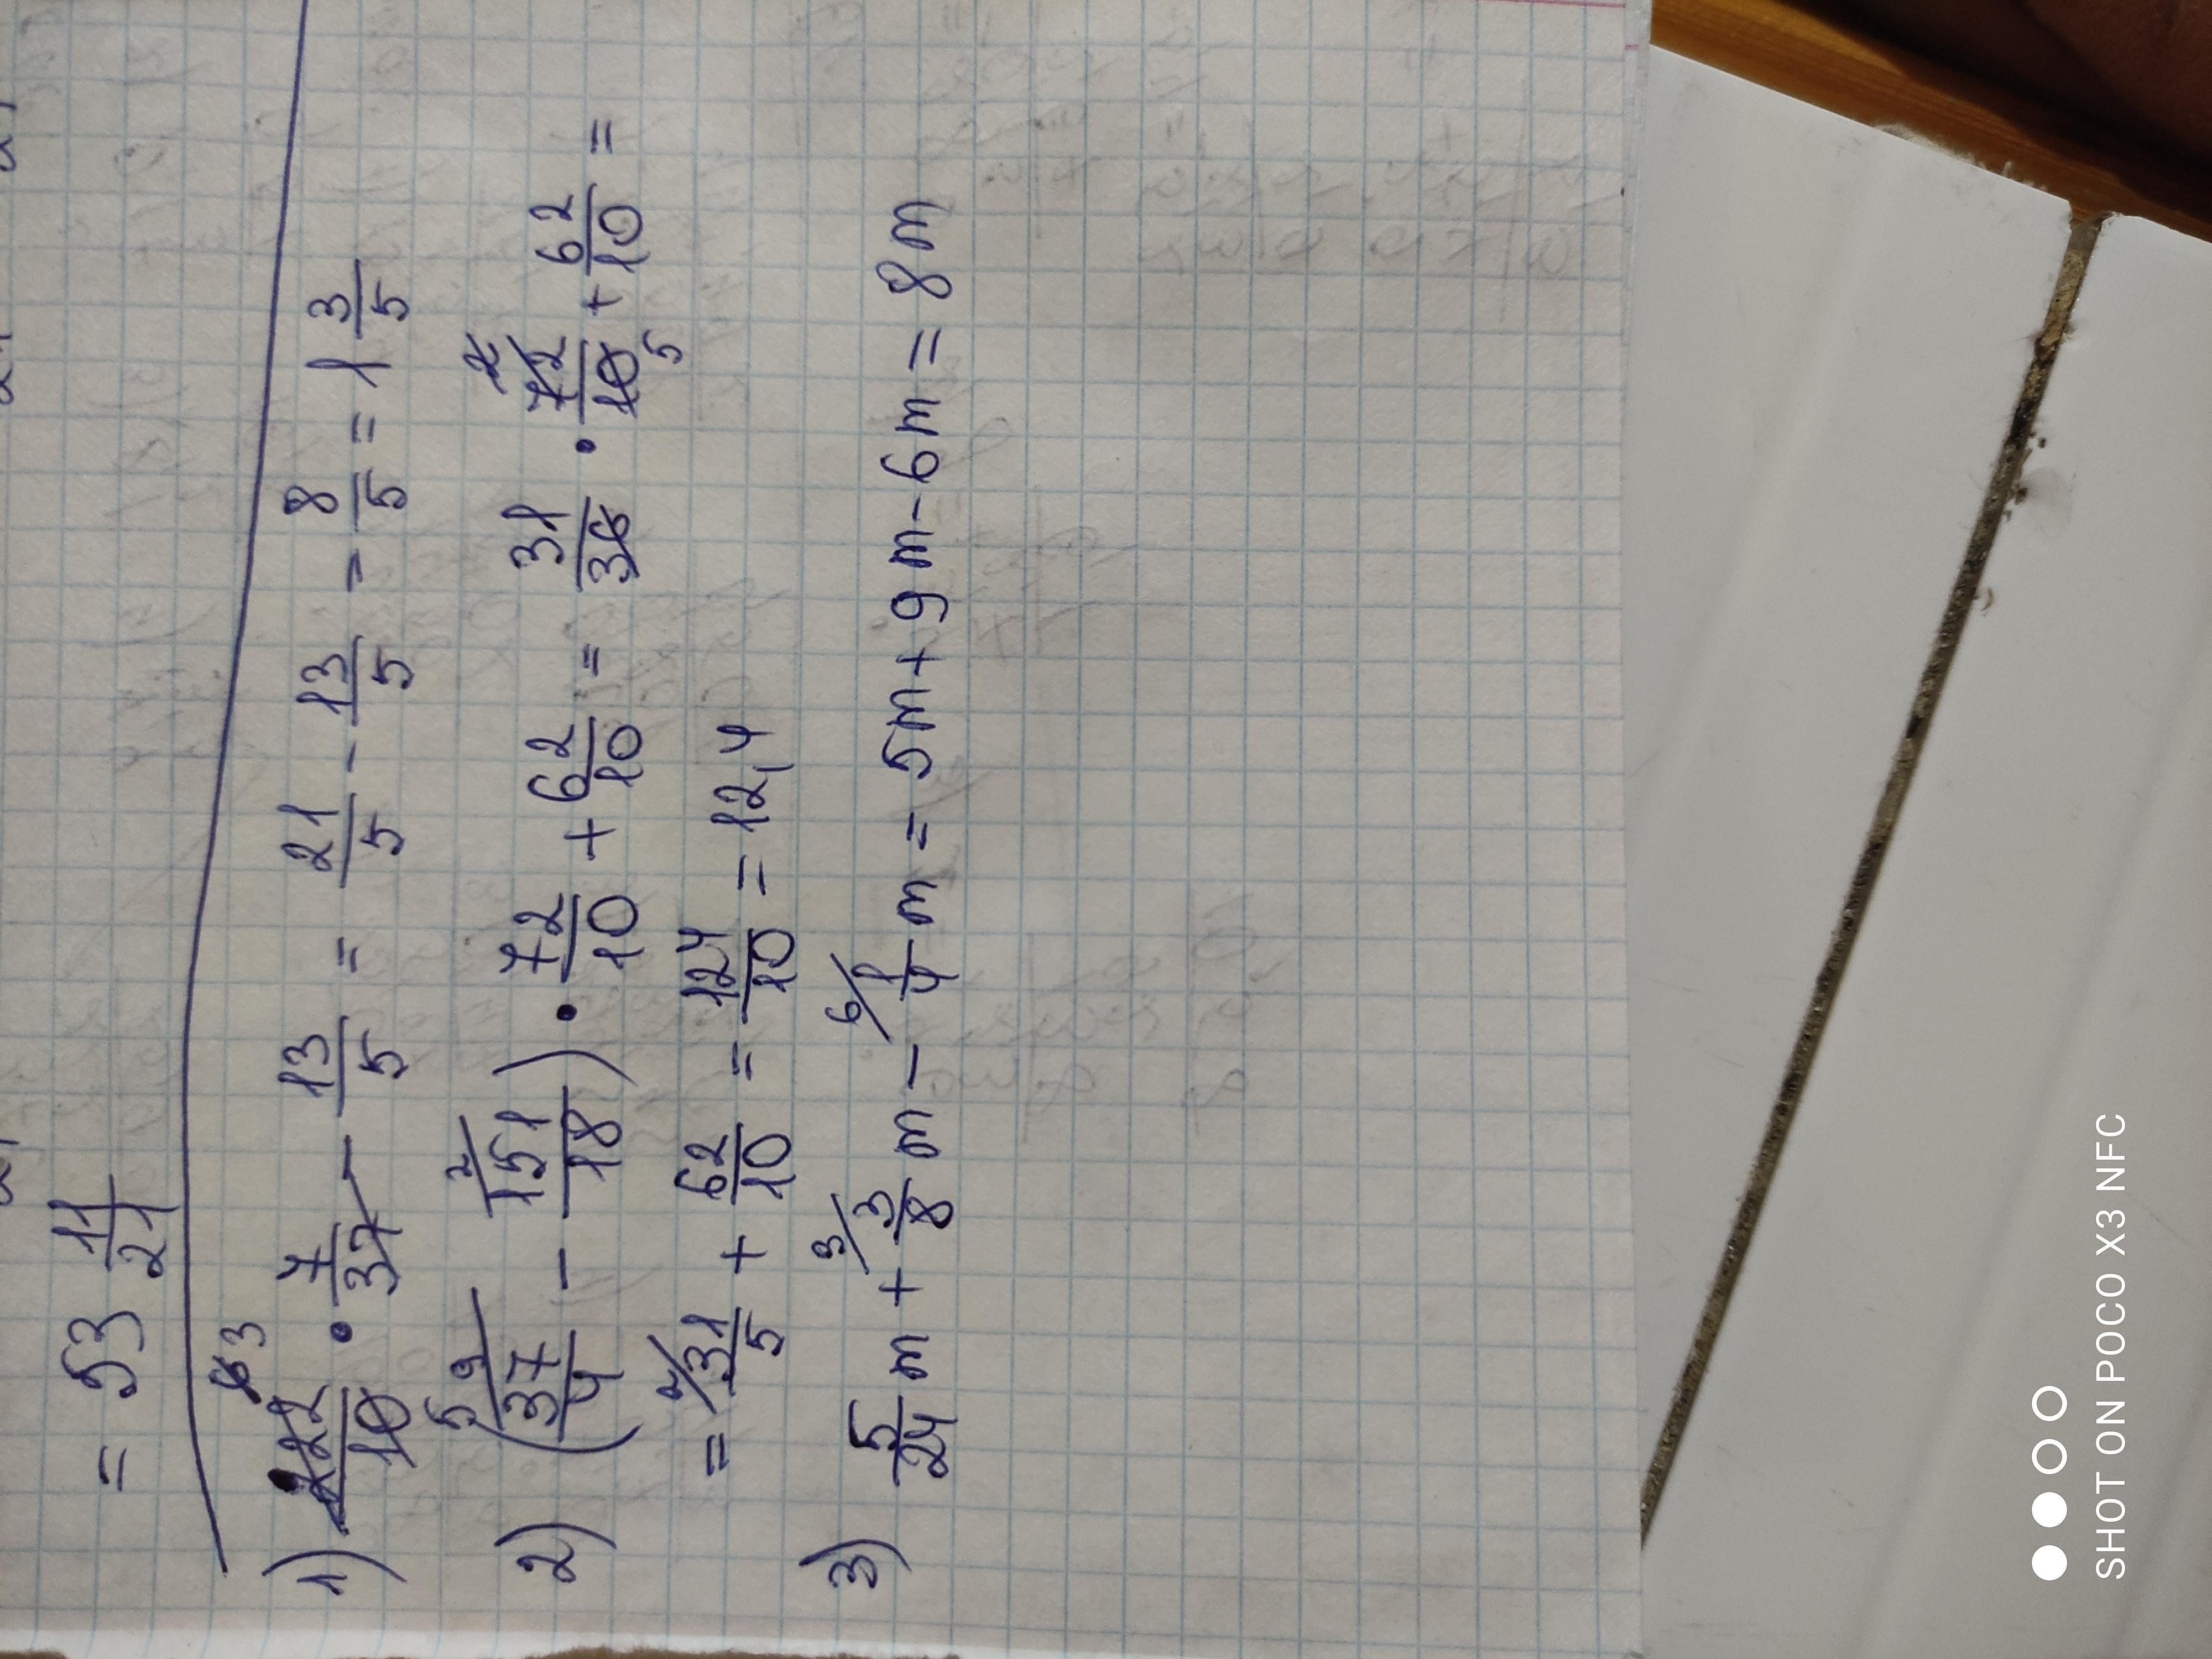 = 53 11/21
1) 222/10 · 7/37 - 13/5 = 21/5 - 13/5 = 8/5 = 1 3/5
2) (37/4 - 151/18) · 72/10 + 62/10 = 31/36 · 72/10 + 62/10 =
= 31/5 + 62/10 = 124/10 = 12,4
3) 5/24 m + 3/8 m - 1/4 m = 5m + 9m - 6m = 8m
SHOT ON POCO X3 NFC